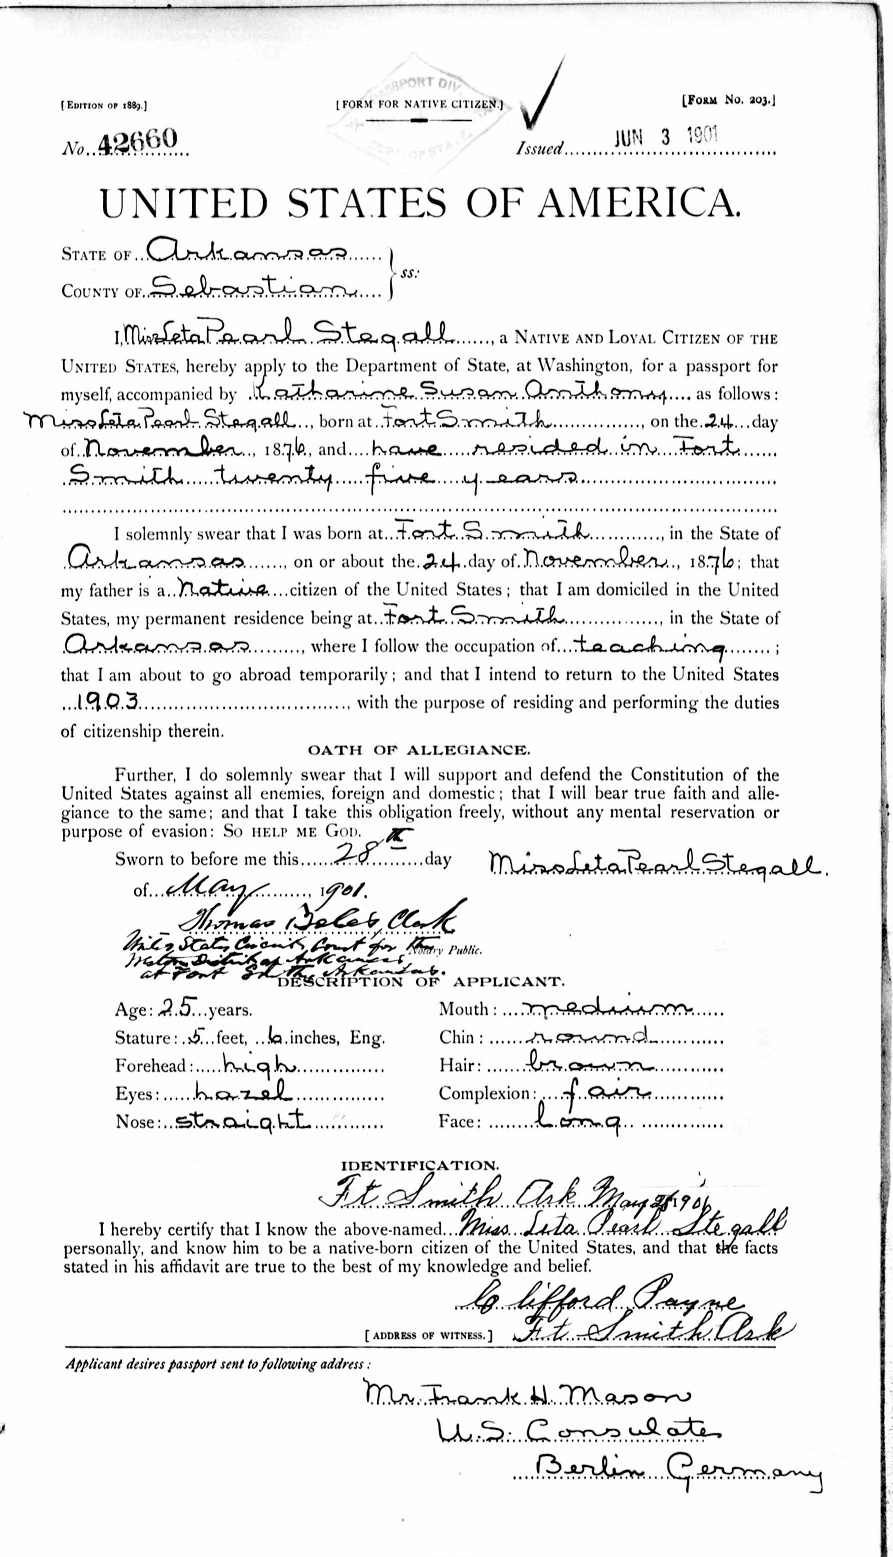 [EDITION OF 1889.] [FORM FOR NATIVE CITIZEN.] [FORM NO. 203.]
No. 42660 Issued JUN 3 1901
UNITED STATES OF AMERICA.
STATE OF Arkansas
COUNTY OF Sebastian } ss:
I, Miss Leta Pearl Stegall, a NATIVE AND LOYAL CITIZEN OF THE
UNITED STATES, hereby apply to the Department of State, at Washington, for a passport for
myself, accompanied by Katharine Susan Anthony as follows:
Miss Leta Pearl Stegall, born at Fort Smith, on the 24 day
of November, 1876, and have resided in Fort
Smith twenty five years
I solemnly swear that I was born at Fort Smith, in the State of
Arkansas, on or about the 24 day of November, 1876; that
my father is a Native citizen of the United States; that I am domiciled in the United
States, my permanent residence being at Fort Smith, in the State of
Arkansas, where I follow the occupation of teaching;
that I am about to go abroad temporarily; and that I intend to return to the United States
1903, with the purpose of residing and performing the duties
of citizenship therein.
OATH OF ALLEGIANCE.
Further, I do solemnly swear that I will support and defend the Constitution of the
United States against all enemies, foreign and domestic; that I will bear true faith and alle-
giance to the same; and that I take this obligation freely, without any mental reservation or
purpose of evasion: SO HELP ME GOD.
Sworn to before me this 28th day Miss Leta Pearl Stegall.
of May, 1901.
Thomas Boles, Clerk
United States Circuit Court for the Notary Public.
Western District of Arkansas
at Fort Smith, Arkansas.
DESCRIPTION OF APPLICANT.
Age: 25 years. Mouth: medium
Stature: 5 feet, 6 inches, Eng. Chin: round
Forehead: high Hair: brown
Eyes: hazel Complexion: fair
Nose: straight Face: long
IDENTIFICATION.
Ft Smith Ark May 28 1901
I hereby certify that I know the above-named Miss Leta Pearl Stegall
personally, and know him to be a native-born citizen of the United States, and that the facts
stated in his affidavit are true to the best of my knowledge and belief.
Clifford Payne
[ADDRESS OF WITNESS.] Ft Smith Ark
Applicant desires passport sent to following address:
Mr. Frank H. Mason
U.S. Consulate
Berlin Germany